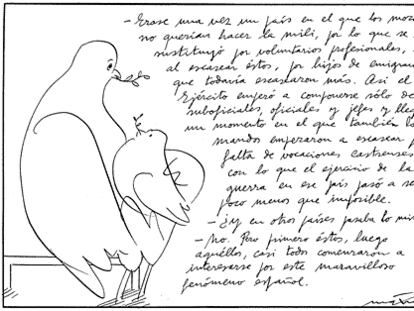 - Érase una vez un país en el que los moz
no querían hacer la mili, por lo que se
sustituyó por voluntarios profesionales,
al escasear éstos, por hijos de emigran
que todavía escasearon más. Así el
Ejército empezó a componerse sólo de
suboficiales, oficiales y jefes y lle
un momento en el que también lo
mandos empezaron a escasear p
falta de vocaciones castrenses
con lo que el ejercicio de la
guerra en ese país pasó a se
poco menos que imposible.
- ¿Y en otros países pasaba lo mis
- No. Pero primero éstos, luego
aquéllos, casi todos comenzaron a
interesarse por este maravilloso
fenómeno español.